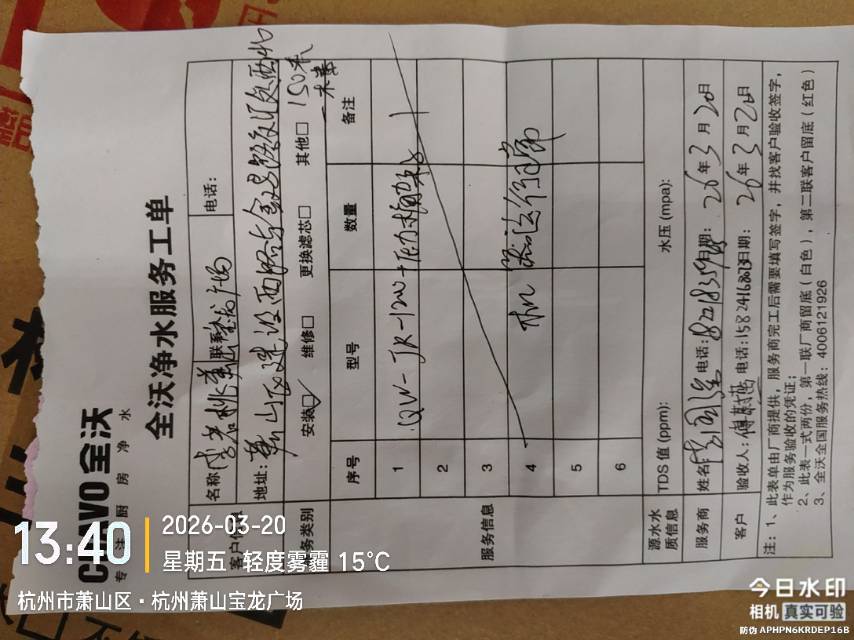 CHAVO全沃
专注厨房净水
全沃净水服务工单
名称 电话:
地址:萧山区建设
服务类别 安装☑ 维修□ 更换滤芯□ 其他□
150米
服务信息
序号 型号 数量 备注
1 QW-JR-12W+压力桶 1
2
3
4 机器运行正常
5
6
源水水质信息 TDS值(ppm): 水压(mpa):
服务商 姓名 电话: 日期: 26年3月20日
客户 验收人: 电话: 日期: 26年3月20日
注:1、此表单由厂商提供,服务商完工后需要填写签字,并找客户验收签字,
作为服务验收的凭证;
2、此表一式两份,第一联厂商留底(白色),第二联客户留底(红色)
3、全沃全国服务热线:4006121926
13:40
2026-03-20
星期五 轻度雾霾 15°C
杭州市萧山区·杭州萧山宝龙广场
今日水印
相机 真实可验
防伪 APHPN6KRDEP16B